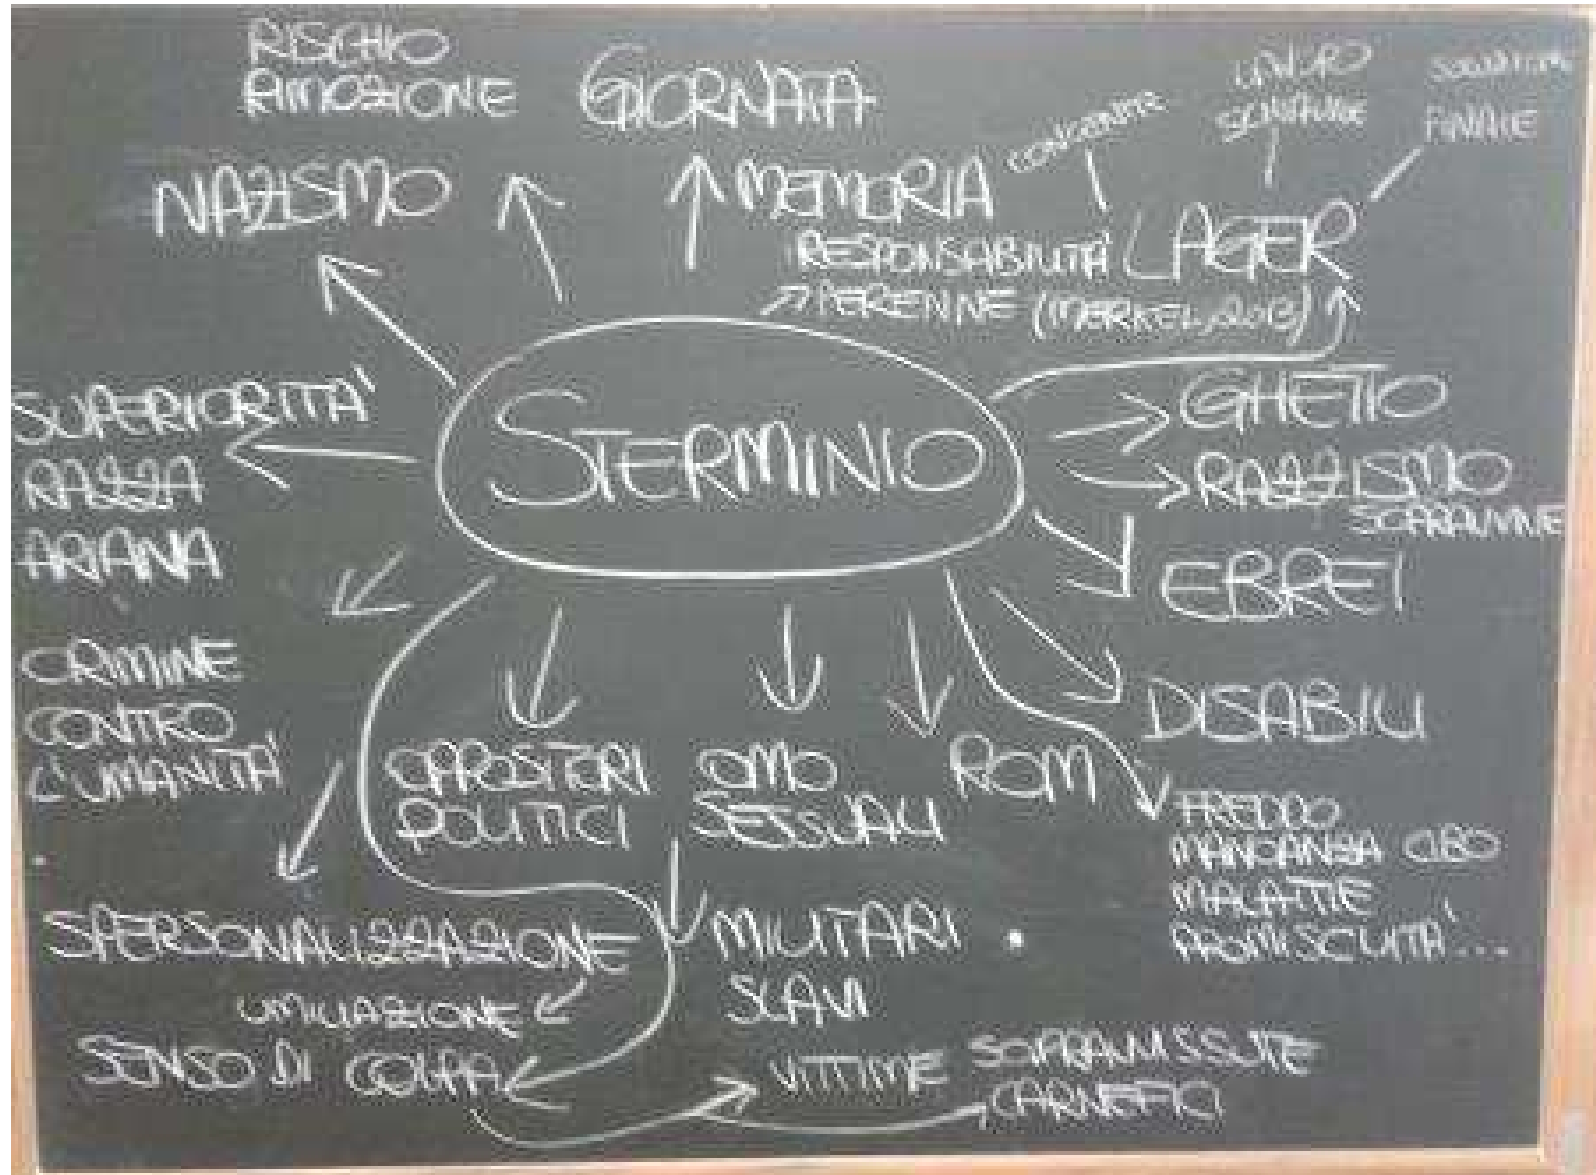 RISCHIO
RIMOZIONE
GIORNATA
MEMORIA
NAZISMO
LAVORO
FINALE
LAGER
RESPONSABILITÀ
PERENNE (MERKEL, 2013)
STERMINIO
SUPERIORITA'
RAZZA
ARIANA
GHETTO
RAZZISMO
EBREI
DISABILI
CRIMINE
CONTRO
L'UMANITA'
OPPOSITORI
POLITICI
OMO
SESSUALI
ROM
FREDDO
MANCANZA CIBO
MALATTIE
PROMISCUITA'...
SPERSONALIZZAZIONE
UMILIAZIONE
SENSO DI COLPA
MILITARI
SLAVI
VITTIME SOPRAVVISSUTE
CARNEFICI